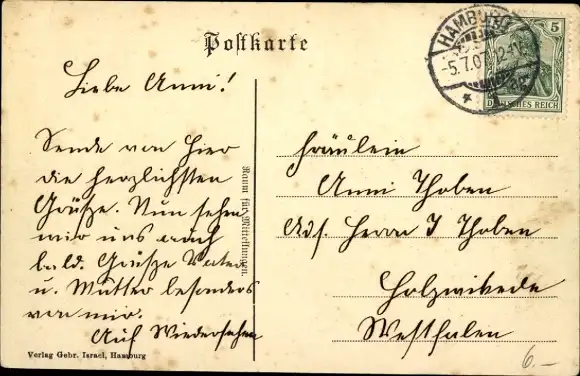 Postkarte
HAMBURG
-5.7.0
5
DEUTSCHES REICH
Liebe Anni!
Sende von hier
die herzlichsten
Grüße. Nun sehen
wir uns auch
bald. Grüße Vater
u. Mutter besonders
von mir.
Auf Wiedersehen
Raum für Mitteilungen.
Fräulein
Anni Thoben
Adr. Herrn J Thoben
Holzwickede
Westfalen
Verlag Gebr. Israel, Hamburg
6.–